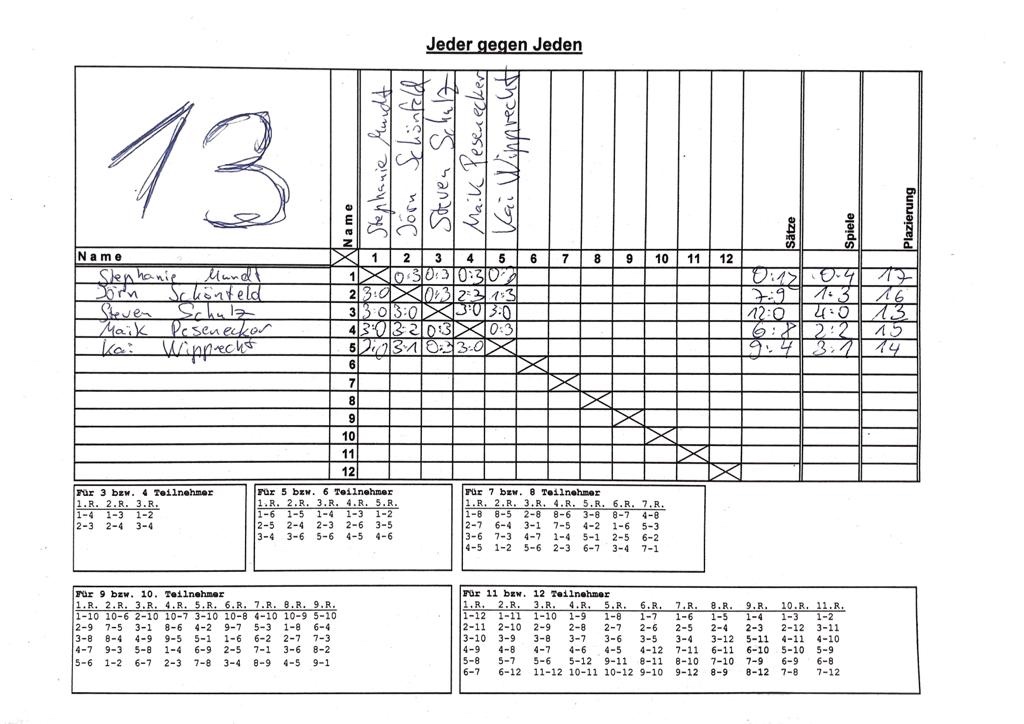 Jeder gegen Jeden
13
Name
Stephanie Mundt
Jörn Schönfeld
Steven Schulz
Maik Pesenecker
Kai Wipprecht
Sätze
Spiele
Plazierung
Name 1 2 3 4 5 6 7 8 9 10 11 12
Stephanie Mundt 1 0:3 0:3 0:3 0:3 0:12 0:4 17
Jörn Schönfeld 2 3:0 0:3 2:3 1:3 7:9 1:3 16
Steven Schulz 3 3:0 3:0 3:0 3:0 12:0 4:0 13
Maik Pesenecker 4 3:0 3:2 0:3 0:3 6:8 2:2 15
Kai Wipprecht 5 3:0 3:1 0:3 3:0 9:4 3:1 14
6
7
8
9
10
11
12
Für 3 bzw. 4 Teilnehmer
1.R. 2.R. 3.R.
1-4 1-3 1-2
2-3 2-4 3-4
Für 5 bzw. 6 Teilnehmer
1.R. 2.R. 3.R. 4.R. 5.R.
1-6 1-5 1-4 1-3 1-2
2-5 2-4 2-3 2-6 3-5
3-4 3-6 5-6 4-5 4-6
Für 7 bzw. 8 Teilnehmer
1.R. 2.R. 3.R. 4.R. 5.R. 6.R. 7.R.
1-8 8-5 2-8 8-6 3-8 8-7 4-8
2-7 6-4 3-1 7-5 4-2 1-6 5-3
3-6 7-3 4-7 1-4 5-1 2-5 6-2
4-5 1-2 5-6 2-3 6-7 3-4 7-1
Für 9 bzw. 10. Teilnehmer
1.R. 2.R. 3.R. 4.R. 5.R. 6.R. 7.R. 8.R. 9.R.
1-10 10-6 2-10 10-7 3-10 10-8 4-10 10-9 5-10
2-9 7-5 3-1 8-6 4-2 9-7 5-3 1-8 6-4
3-8 8-4 4-9 9-5 5-1 1-6 6-2 2-7 7-3
4-7 9-3 5-8 1-4 6-9 2-5 7-1 3-6 8-2
5-6 1-2 6-7 2-3 7-8 3-4 8-9 4-5 9-1
Für 11 bzw. 12 Teilnehmer
1.R. 2.R. 3.R. 4.R. 5.R. 6.R. 7.R. 8.R. 9.R. 10.R. 11.R.
1-12 1-11 1-10 1-9 1-8 1-7 1-6 1-5 1-4 1-3 1-2
2-11 2-10 2-9 2-8 2-7 2-6 2-5 2-4 2-3 2-12 3-11
3-10 3-9 3-8 3-7 3-6 3-5 3-4 3-12 5-11 4-11 4-10
4-9 4-8 4-7 4-6 4-5 4-12 7-11 6-11 6-10 5-10 5-9
5-8 5-7 5-6 5-12 9-11 8-11 8-10 7-10 7-9 6-9 6-8
6-7 6-12 11-12 10-11 10-12 9-10 9-12 8-9 8-12 7-8 7-12